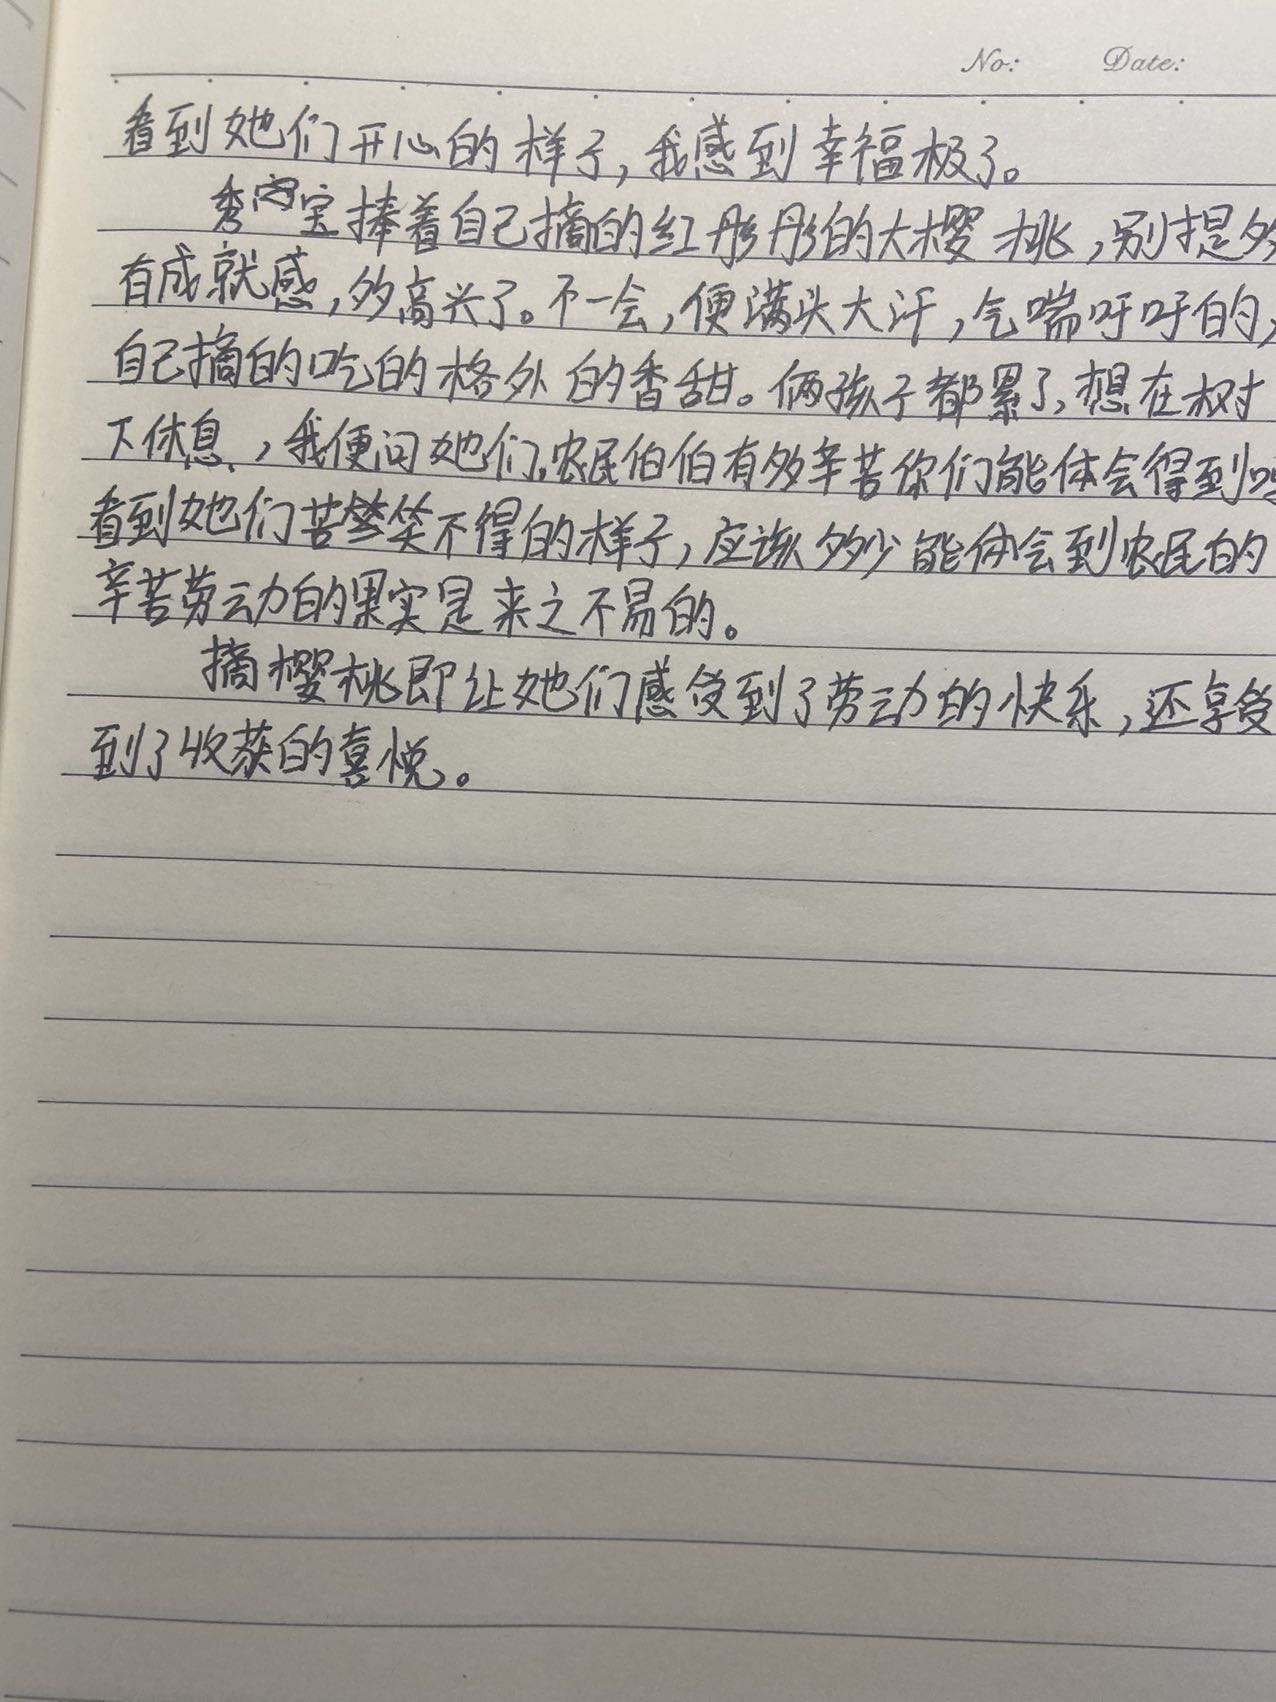 No: Date:
看到她们开心的样子,我感到幸福极了。
秀宝捧着自己摘的红彤彤的大樱桃,别提多
有成就感,多高兴了。不一会,便满头大汗,气喘吁吁的,
自己摘的吃的格外的香甜。俩孩子都累了,想在树
下休息,我便问她们,农民伯伯有多辛苦你们能体会得到吗
看到她们苦笑不得的样子,应该多少能体会到农民的
辛苦劳动的果实是来之不易的。
摘樱桃即让她们感受到了劳动的快乐,还享受
到了收获的喜悦。